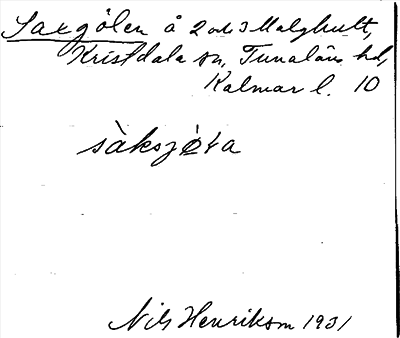 Saxgölen å 2 och 3 Malghult,
Kristdala sn, Tunaläns hd,
Kalmar l. 10
sàksjø̀ta
Nils Henrikson 1931